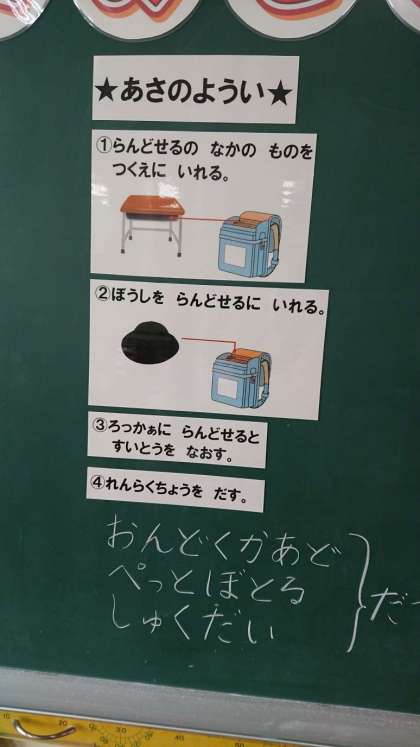 ★あさのようい★
①らんどせるの なかの ものを
つくえに いれる。
②ぼうしを らんどせるに いれる。
③ろっかぁに らんどせると
すいとうを なおす。
④れんらくちょうを だす。
おんどくかあど
ぺっとぼとる
しゅくだい
だ
10 20 30